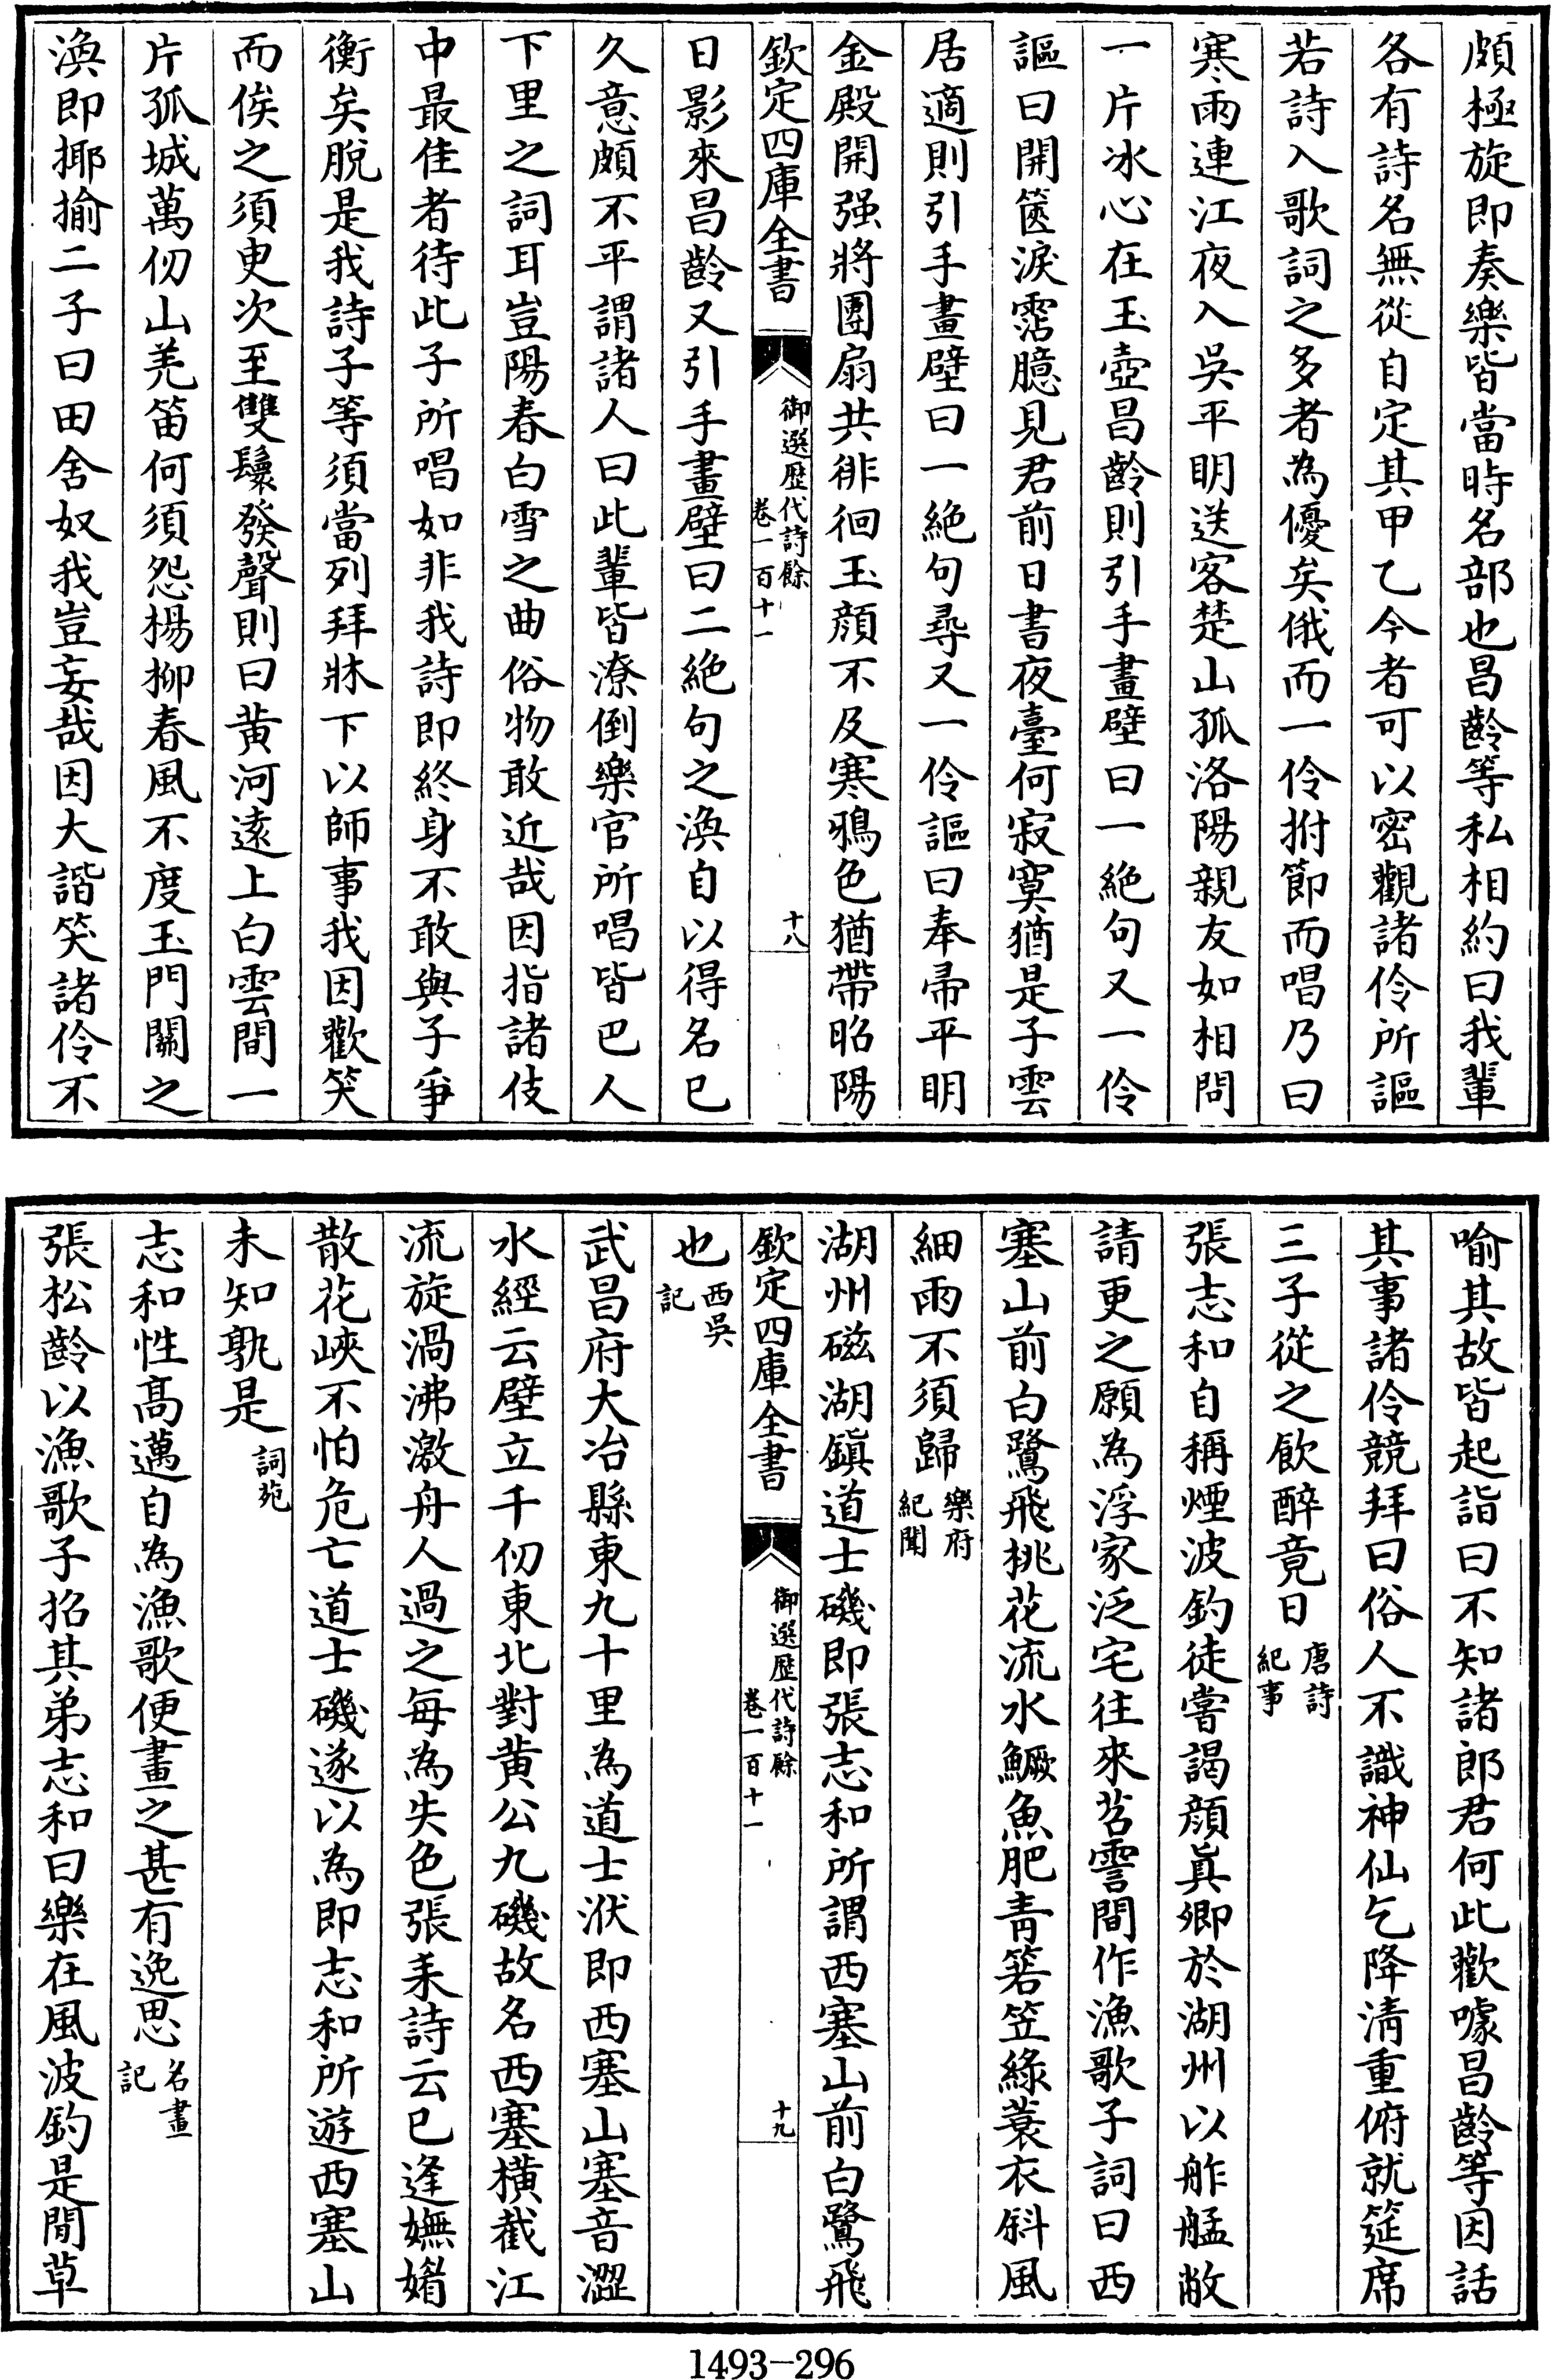 頗極旋即奏樂皆當時名部也昌齡等私相約曰我輩
各有詩名無從自定其甲乙今者可以密觀諸伶所謳
若詩入歌詞之多者為優矣俄而一伶拊節而唱乃曰
寒雨連江夜入吳平明送客楚山孤洛陽親友如相問
一片冰心在玉壺昌齡則引手畫壁曰一絶句又一伶
謳曰開篋淚霑臆見君前日書夜臺何寂寞猶是子雲
居適則引手畫壁曰一絶句尋又一伶謳曰奉帚平明
金殿開强將團扇共徘徊玉顔不及寒鴉色猶帶昭陽
欽定四庫全書 御選歴代詩餘 卷一百十一 十八
日影來昌齡又引手畫壁曰二絶句之渙自以得名已
久意頗不平謂諸人曰此輩皆潦倒樂官所唱皆巴人
下里之詞耳豈陽春白雪之曲俗物敢近哉因指諸伎
中最佳者待此子所唱如非我詩即終身不敢與子爭
衡矣脫是我詩子等須當列拜牀下以師事我因歡笑
而俟之須臾次至雙鬟發聲則曰黄河遠上白雲間一
片孤城萬仞山羌笛何須怨楊柳春風不度玉門關之
渙即揶揄二子曰田舍奴我豈妄哉因大諧笑諸伶不
喻其故皆起詣曰不知諸郎君何此歡噱昌齡等因話
其事諸伶競拜曰俗人不識神仙乞降清重俯就筵席
三子從之飲醉竟日 唐詩紀事
張志和自稱煙波釣徒嘗謁顔眞卿於湖州以舴艋敝
請更之願為浮家泛宅往來苕霅間作漁歌子詞曰西
塞山前白鷺飛桃花流水鱖魚肥青箬笠綠蓑衣斜風
細雨不須歸 樂府紀聞
湖州磁湖鎮道士磯即張志和所謂西塞山前白鷺飛
欽定四庫全書 御選歴代詩餘 卷一百十一 十九
也 西吳記
武昌府大冶縣東九十里為道士洑即西塞山塞音澀
水經云壁立千仞東北對黄公九磯故名西塞横截江
流旋渦沸激舟人過之每為失色張耒詩云已逢嫵媚
散花峽不怕危亡道士磯遂以為即志和所遊西塞山
未知孰是 詞苑
志和性高邁自為漁歌便畫之甚有逸思 名畫記
張松齡以漁歌子招其弟志和曰樂在風波釣是閒草
1493-296